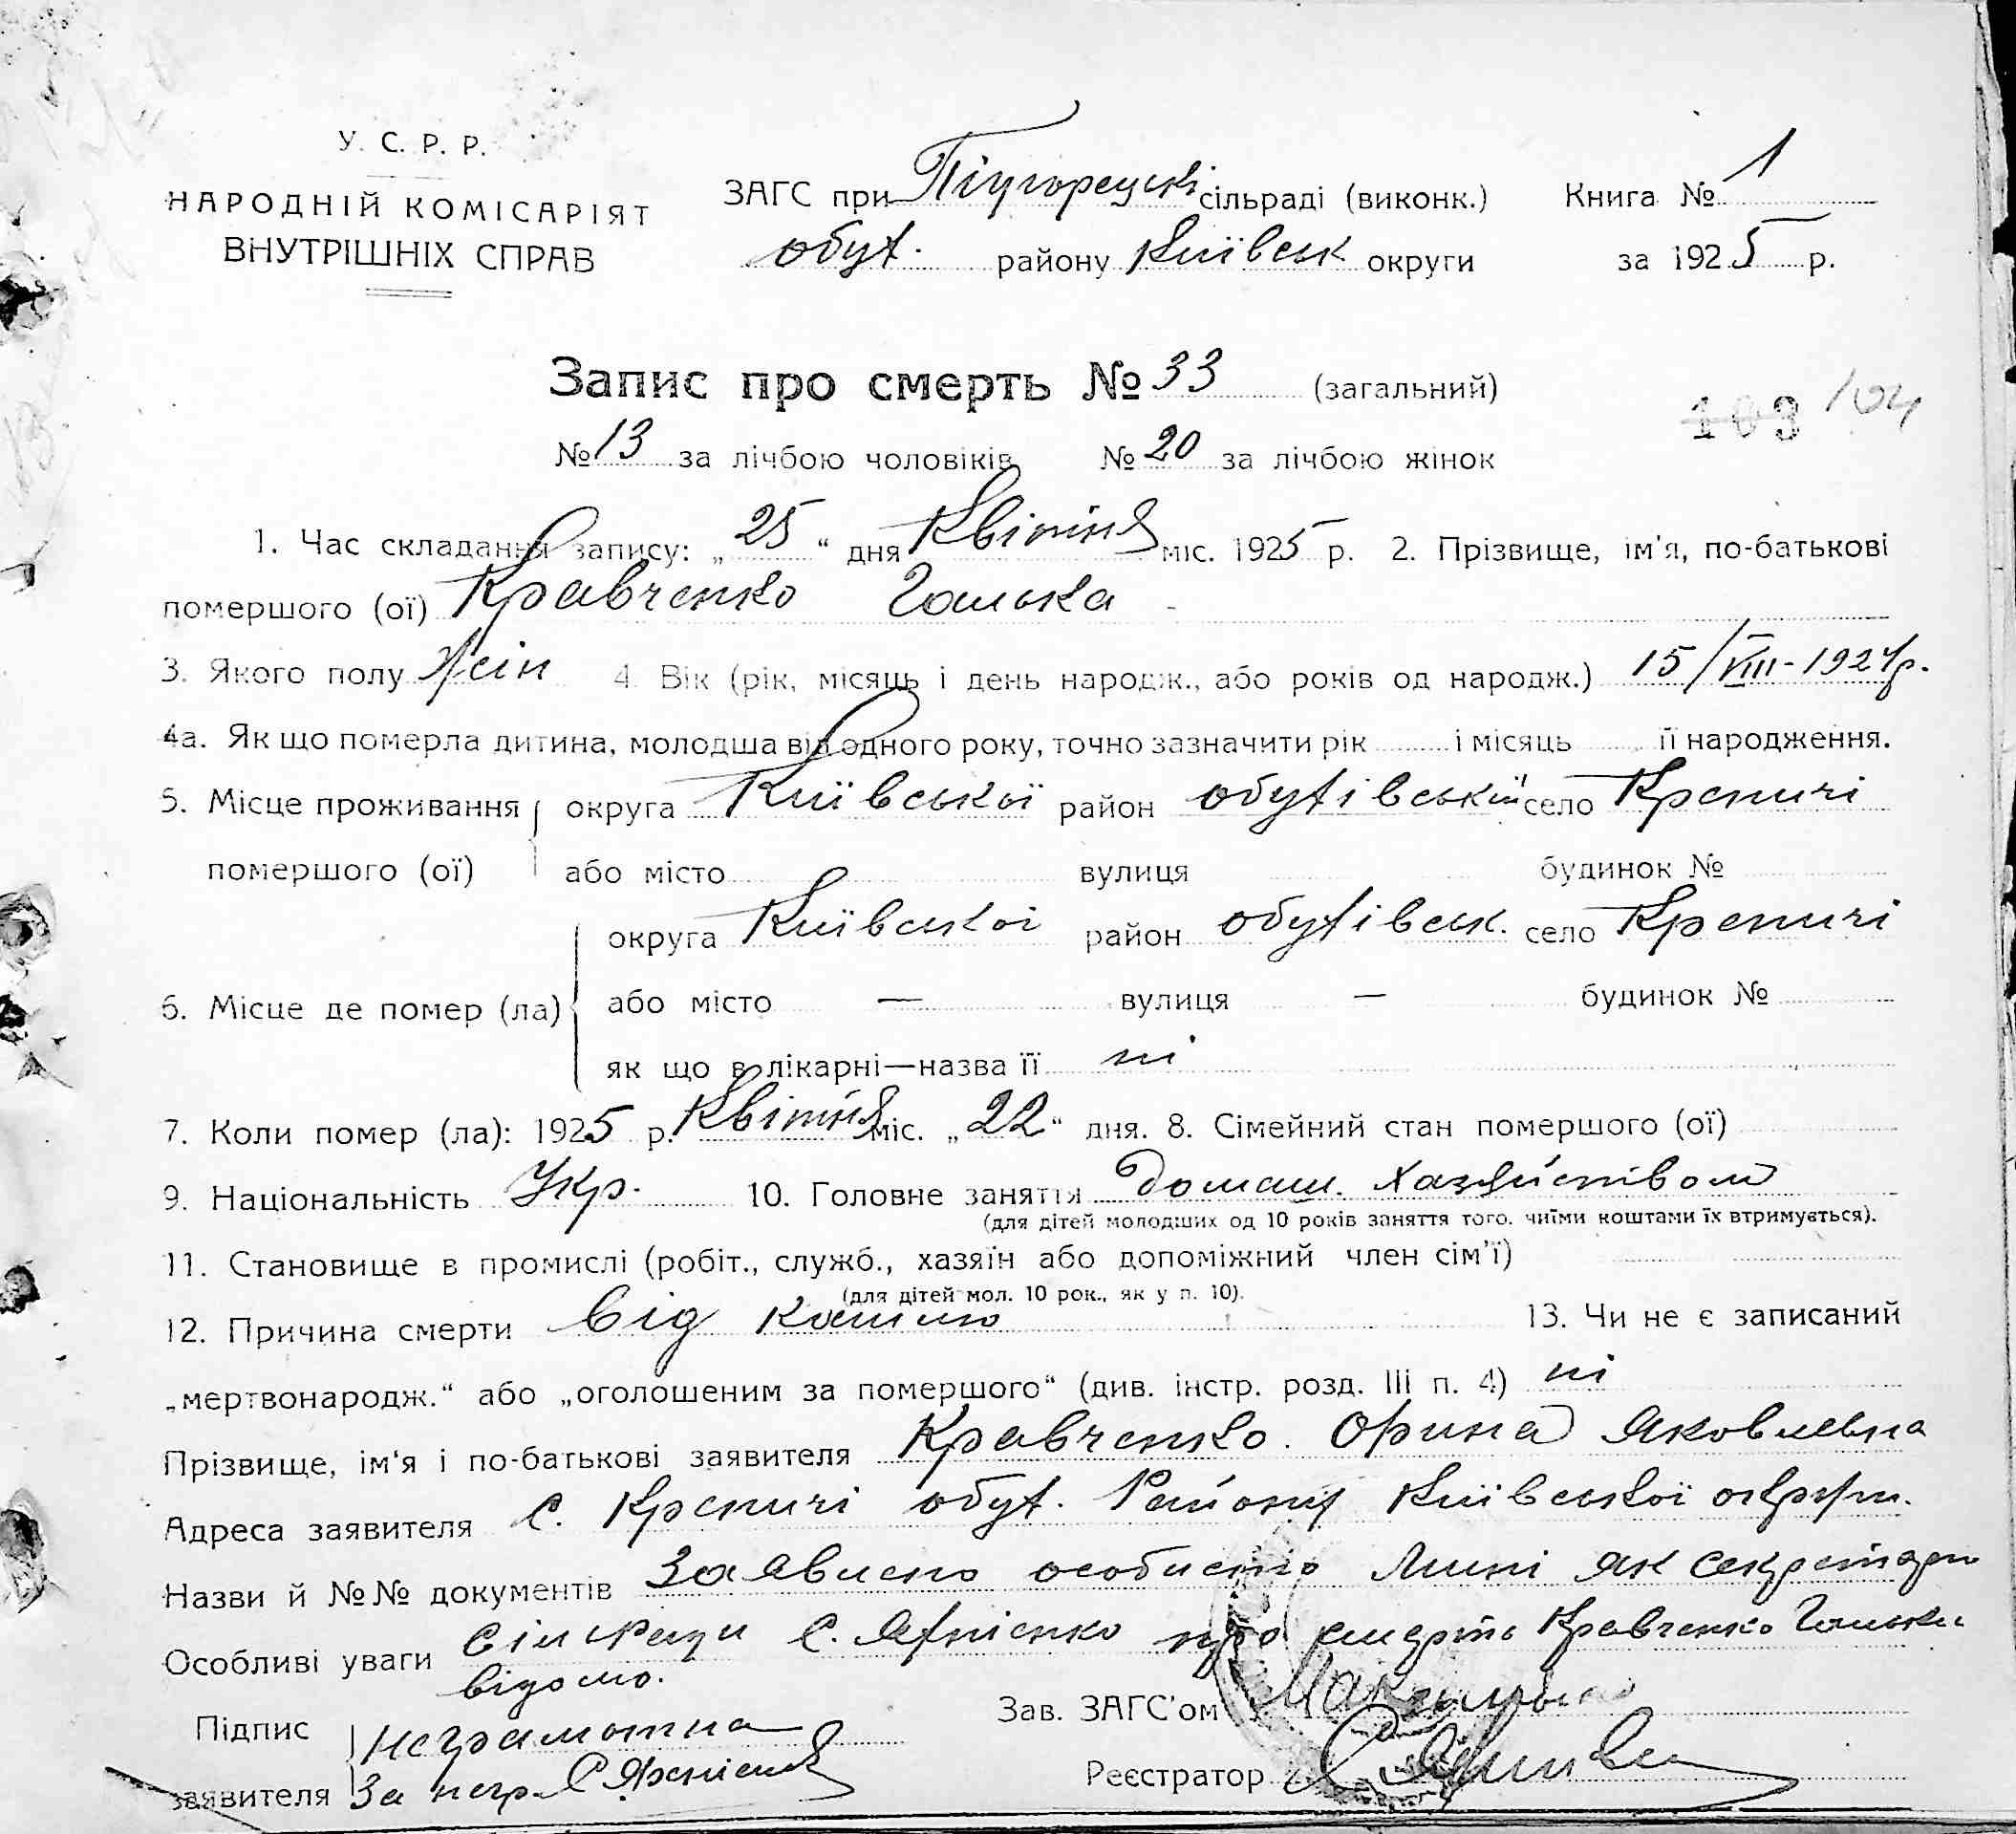 У. С. Р. Р.
НАРОДНІЙ КОМІСАРІЯТ
ВНУТРІШНІХ СПРАВ
ЗАГС при Підгорецькі сільраді (виконк.)
обух. району Київськ округи
Книга № 1
за 1925 р.
Запис про смерть № 33 (загальний)
103 104
№ 13 за лічбою чоловіків № 20 за лічбою жінок
1. Час складання запису: „25“ дня Квітня міс. 1925 р. 2. Прізвище, ім'я, по-батькові
помершого (ої) Кравченко Галька -
3. Якого полу жін 4. Вік (рік, місяць і день народж., або років од народж.) 15/VIII-1924р.
4а. Як що померла дитина, молодша від одного року, точно зазначити рік і місяць її народження.
5. Місце проживання округа Київської район обухівський село Креничі
помершого (ої) або місто вулиця будинок №
округа Київської район обухівськ. село Креничі
6. Місце де помер (ла) або місто — вулиця — будинок №
як що в лікарні—назва її ні
7. Коли помер (ла): 1925 р. Квітня міс. „22“ дня. 8. Сімейний стан помершого (ої)
9. Національність Укр. 10. Головне заняття домаш. хазяйством
(для дітей молодших од 10 років заняття того, чиїми коштами їх втримується).
11. Становище в промислі (робіт., служб., хазяїн або допоміжний член сім'ї)
(для дітей мол. 10 рок., як у п. 10).
12. Причина смерти від кашлю 13. Чи не є записаний
„мертвонародж.“ або „оголошеним за помершого“ (див. інстр. розд. III п. 4) ні
Прізвище, ім'я і по-батькові заявителя Кравченко Орина Яковлевна
Адреса заявителя с. Креничі обух. Району Київської округи.
Назви й №№ документів Заявлено особисто Мині як секретарю
Особливі уваги сільради С. про смерть Кравченко Гальки
відомо.
Підпис неграмотна
Зав. ЗАГС'ом
заявителя За негр. С.
Реєстратор